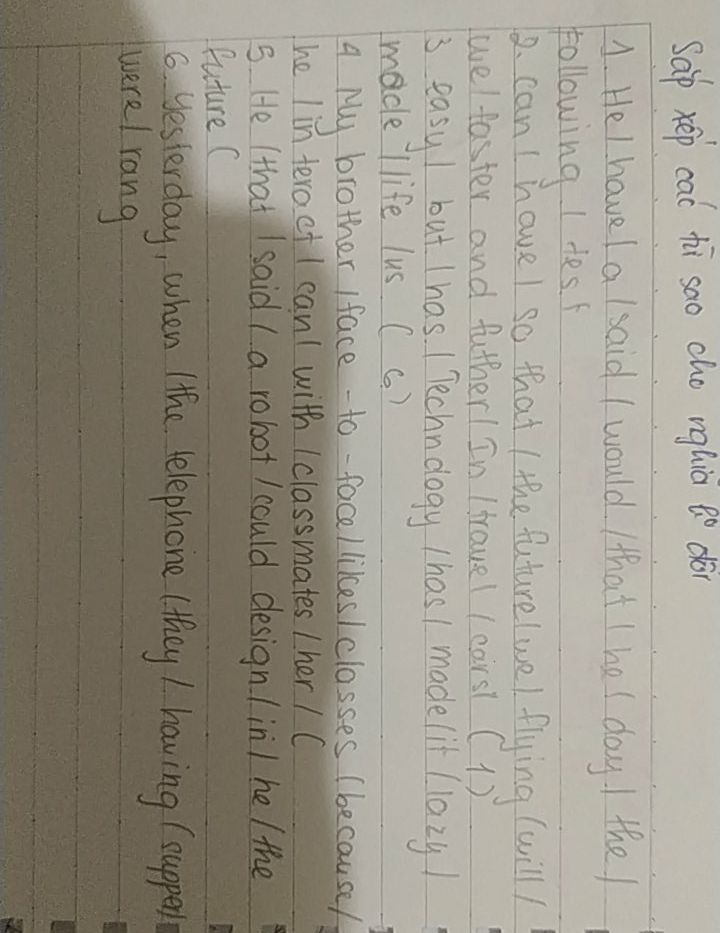 Sắp xếp các từ sao cho nghĩa k đổi
1. He / have / a / said / would / that / he / day / the /
Following / test
2. can / have / so that / the future / we / flying / will /
we / faster and futher / In / travel / cars / ( 1 )
3 easy / but / has / Technology / has / made / it / lazy /
made / life / us ( 6 )
4 My brother / face - to - face / likes / classes / because /
he / interact / can / with / classmates / her / (
5. He / that / said / a robot / could design / in / he / the
future (
6. Yesterday, when / the telephone / they / having / supper /
were / rang